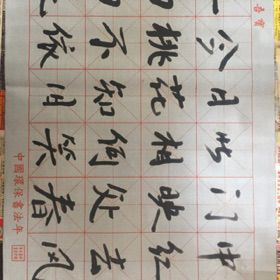 今日此门中
桃花相映红
不知何处去
依旧笑春风
中國環保書法年